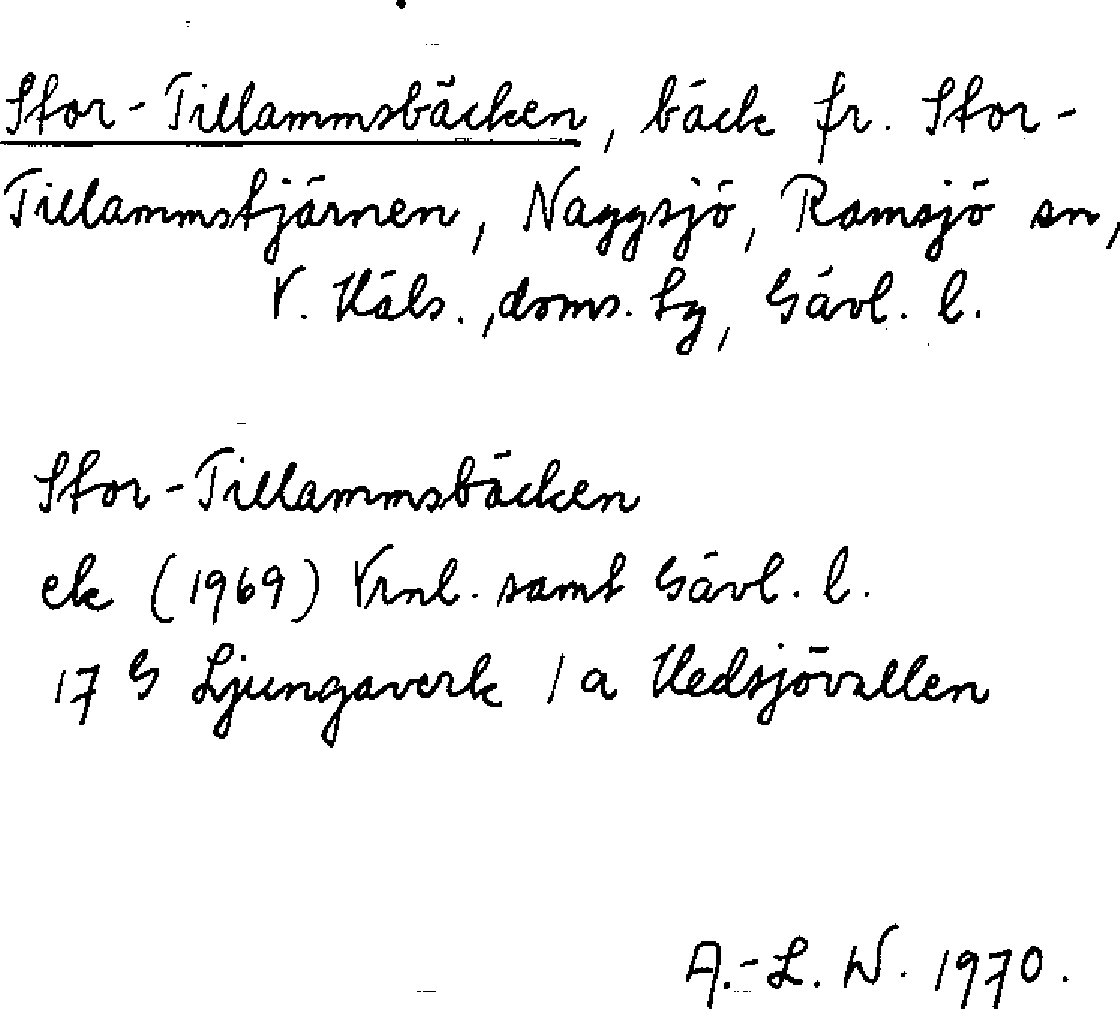 Stor-Tillammsbäcken, bäck fr. Stor-
Tillammstjärnen, Naggsjö, Ramsjö sn,
V. Häls., doms. Lg, Gävl. l.
Stor-Tillammsbäcken
ek (1969) Vrnl. samt Gävl. l.
17 G Ljungaverk 1 a Hedsjövallen
A.-L. W. 1970.